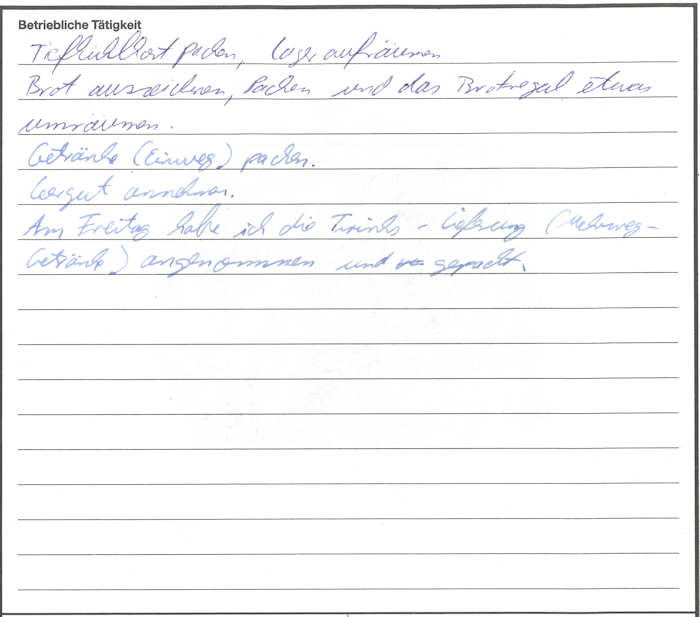 Betriebliche Tätigkeit
Tiefkühlkost packen, Lager aufräumen
Brot auszeichnen, Packen und das Brotregal etwas
umräumen.
Getränke (Einweg) packen.
Leergut annehmen.
Am Freitag habe ich die Trinks - Lieferung (Mehrweg-
Getränke) angenommen und gepackt.